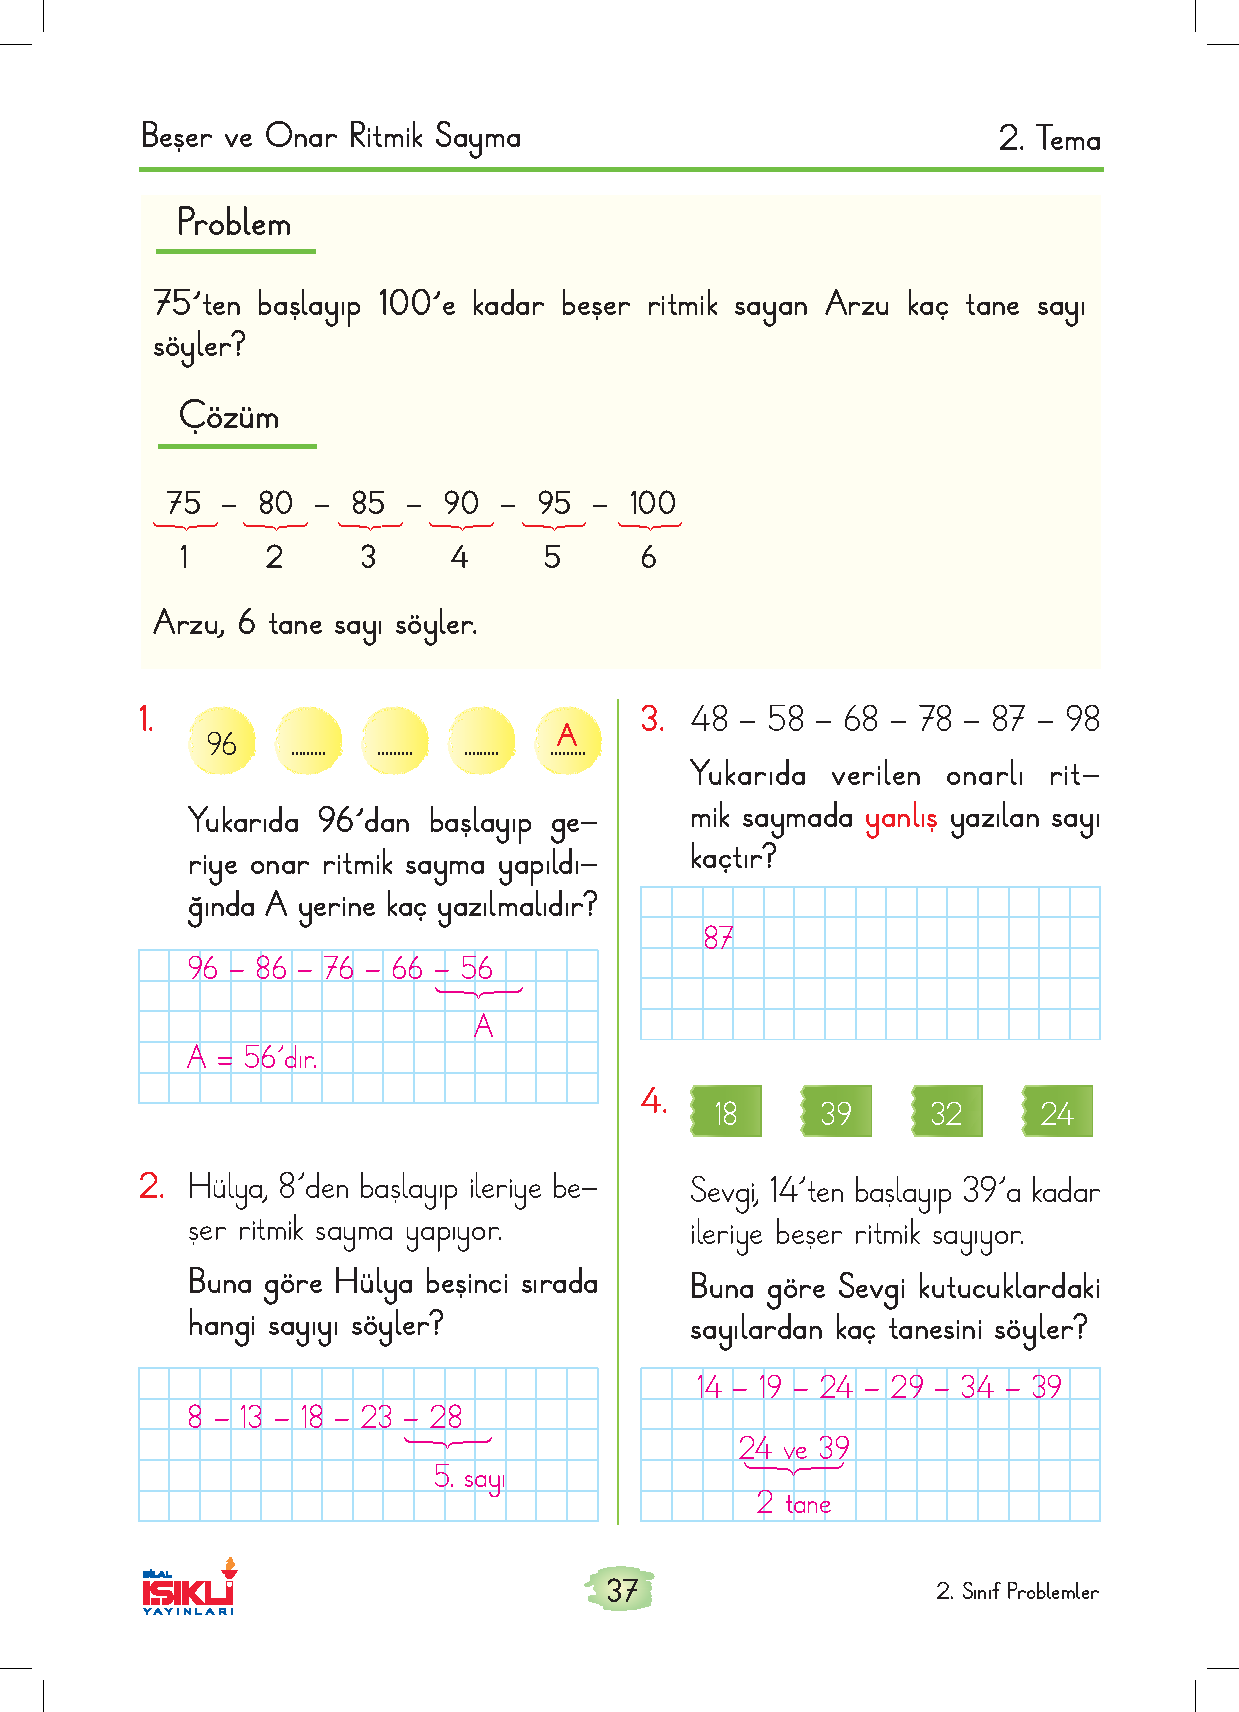 Beşer ve Onar Ritmik Sayma
2. Tema
Problem
75'ten başlayıp 100'e kadar beşer ritmik sayan Arzu kaç tane sayı
söyler?
Çözüm
75 – 80 – 85 – 90 – 95 – 100
1 2 3 4 5 6
Arzu, 6 tane sayı söyler.
1.
96 ......... ......... ......... A .........
Yukarıda 96'dan başlayıp ge–
riye onar ritmik sayma yapıldı–
ğında A yerine kaç yazılmalıdır?
96 – 86 – 76 – 66 – 56
A
A = 56'dır.
2. Hülya, 8'den başlayıp ileriye be–
şer ritmik sayma yapıyor.
Buna göre Hülya beşinci sırada
hangi sayıyı söyler?
8 – 13 – 18 – 23 – 28
5. sayı
3. 48 – 58 – 68 – 78 – 87 – 98
Yukarıda verilen onarlı rit–
mik saymada yanlış yazılan sayı
kaçtır?
87
4.
18 39 32 24
Sevgi, 14'ten başlayıp 39'a kadar
ileriye beşer ritmik sayıyor.
Buna göre Sevgi kutucuklardaki
sayılardan kaç tanesini söyler?
14 – 19 – 24 – 29 – 34 – 39
24 ve 39
2 tane
BİLAL
IŞIKLI
YAYINLARI
37
2. Sınıf Problemler